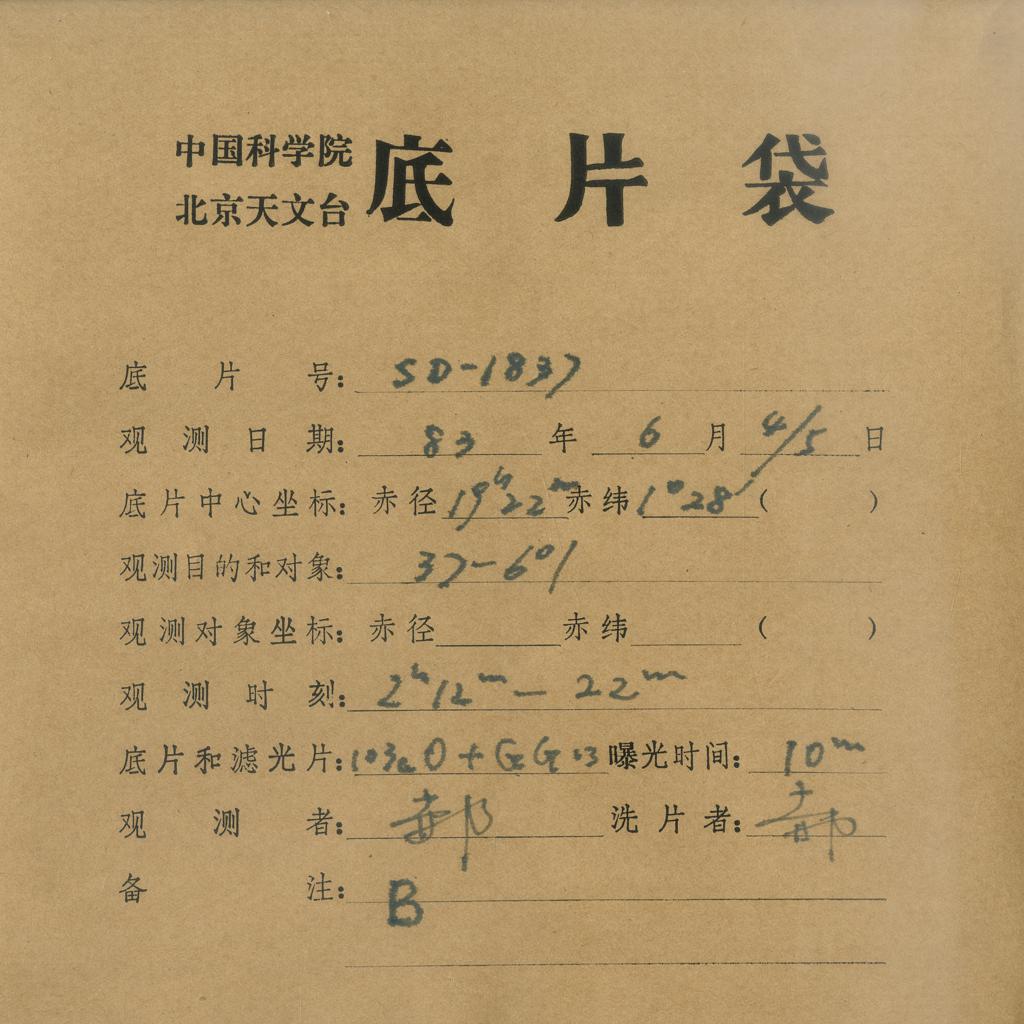 中国科学院
北京天文台
底片袋
底片号: SD-1837
观测日期: 83 年 6 月 4/5 日
底片中心坐标: 赤径 19h22m 赤纬 1°28′ ( )
观测目的和对象: 37-601
观测对象坐标: 赤径 赤纬 ( )
观测时刻: 2h12m — 22m
底片和滤光片: 103aO + GG13 曝光时间: 10m
观测者: 郝 洗片者: 郝
备注: B